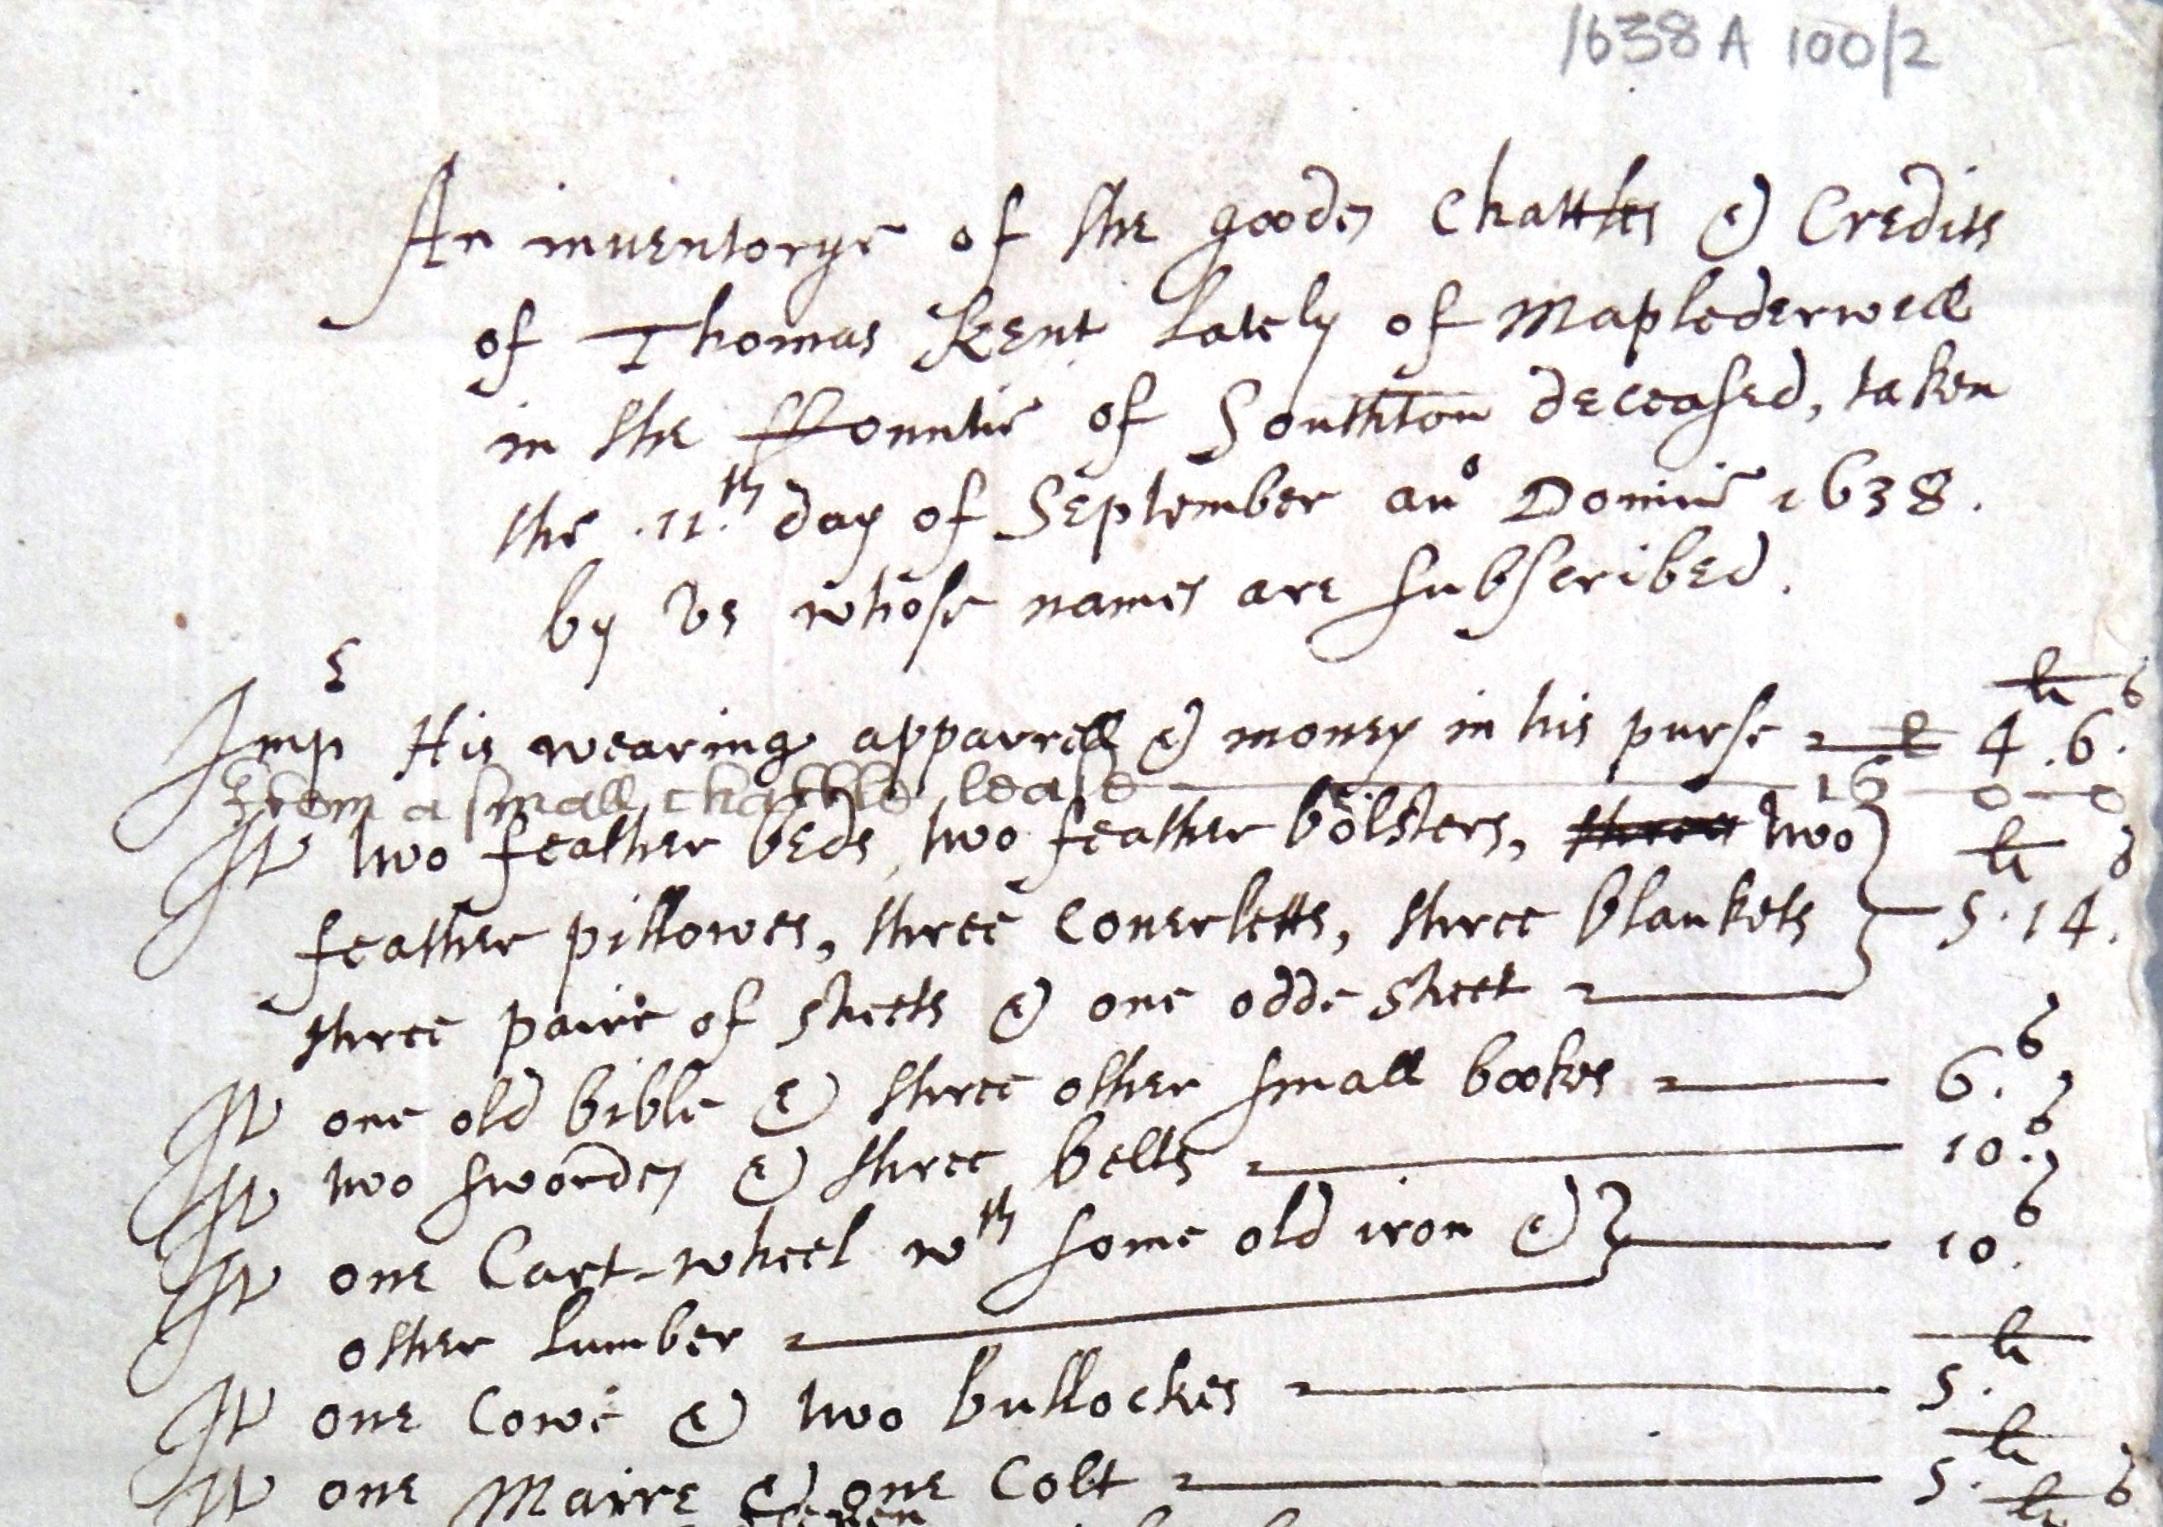 1638 A 100/2
An inuentorye of the goodes Chattles & Credits
of Thomas Kent Lately of Maplederwell
in the Countie of Southton deceased, taken
the .11.th day of September an° Domini 1638.
by vs whose names are subscribed.
Imp His wearing apparrell & money in his purse li 4 . 6. s
From a small chattle lease 16 - 0 - 0
It two feather beds, two feather bolsters, three two li s
feather pillowes, three Couerletts, three blankets 5 . 14.
three paire of sheets & one odde sheet
It one old bible & three other small bookes 6. s
It two swordes & three belts 10. s
It one Cart-wheel wth some old iron & 10. s
other Lumber
It one Cowe & two bullockes 5. li
It one Maire & one Colt 5. li